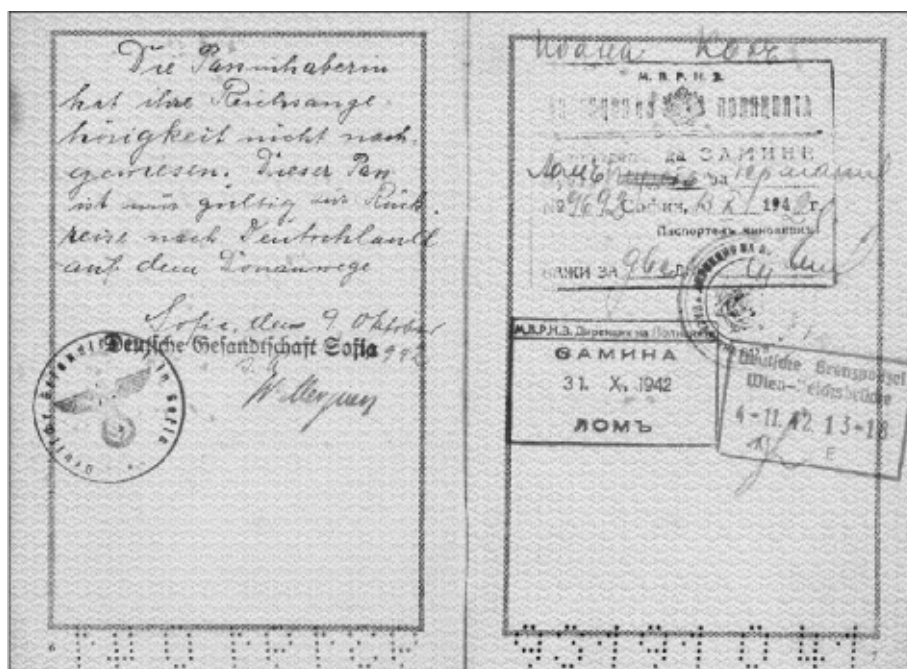 Die Passinhaberin
hat ihre Reichsange-
hörigkeit nicht nach-
gewiesen. Dieser Pass
ist nur gültig zur Rück-
reise nach Deutschland
auf dem Donauwege
Sofia, den 9. Oktober
1942
Deutsche Gesandtschaft Sofia
6
М.В.Р.Н.З.
ПОЛИЦИЯТА
да ЗАМИНЕ
Ломъ за Германия
№ 9692 София, 194 г.
Паспортенъ чиновникъ:
ВАЖИ ЗА
М.В.Р.Н.З. Дирекция на Полицията
ЗАМИНА
31. X. 1942
ЛОМЪ
Deutsche Grenzpolizei
Wien-Reichsbrücke
4-11.42. 13-18
E
7